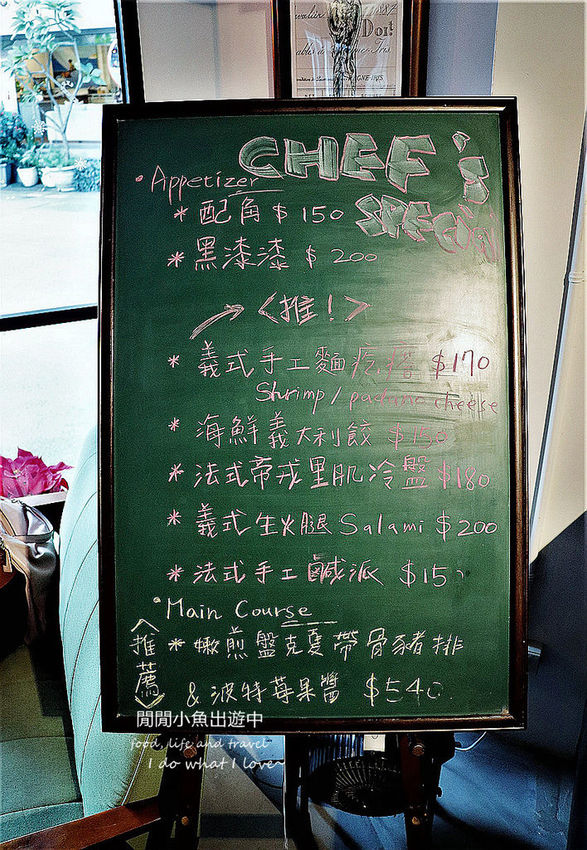 Doit
CHEF's
SPECIAL
• Appetizer
* 配角 $ 150
* 黑漆漆 $ 200
→ <推!>
* 義式手工麵疙瘩 $170
Shrimp / cheese
* 海鮮義大利餃 $150
* 法式帝戎里肌冷盤 $180
* 義式生火腿 Salami $200
* 法式手工鹹派 $150
• Main Course
<推薦>
* 嫩煎盤克夏帶骨豬排
& 波特莓果醬 $540
閒閒小魚出遊中
food, life and travel
I do what I love~